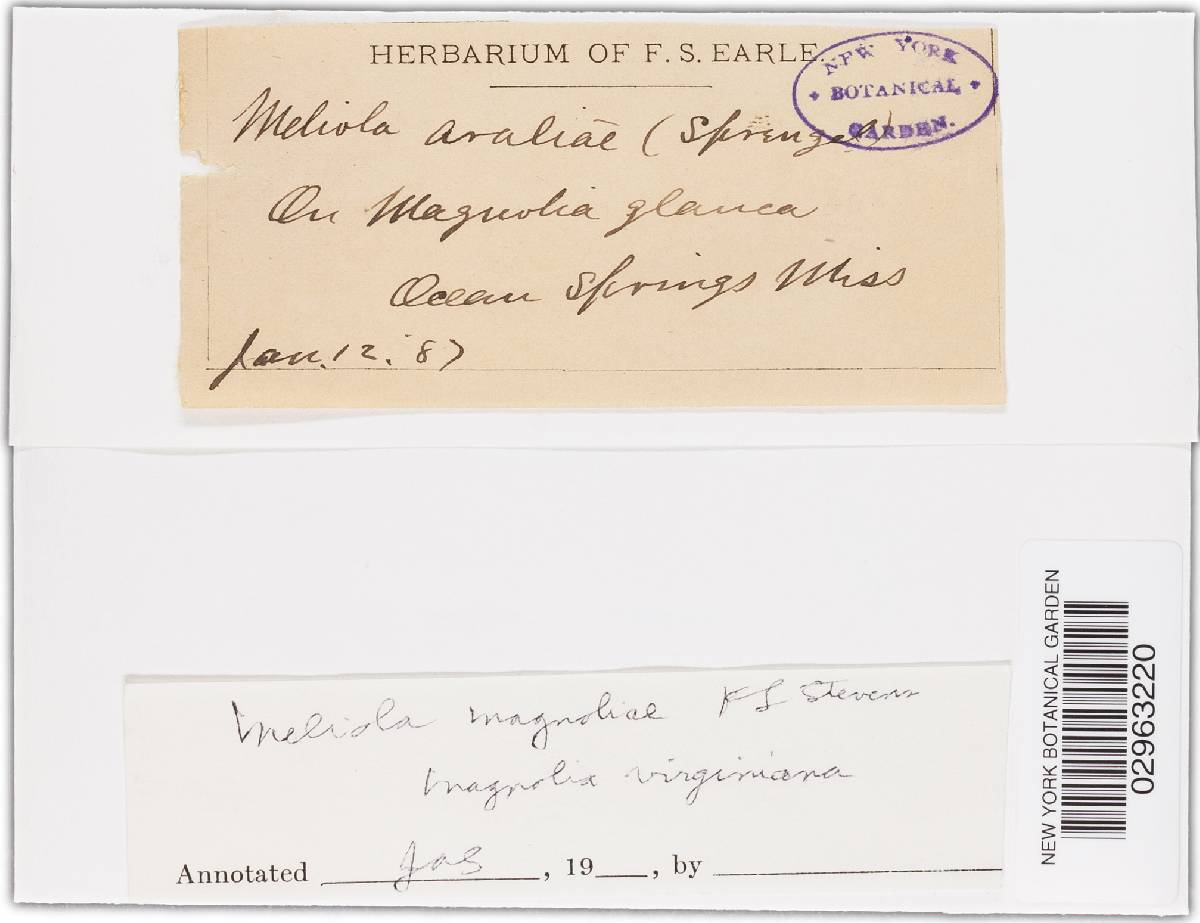 HERBARIUM OF F. S. EARLE
NEW YORK
BOTANICAL
GARDEN.
Meliola araliae (Sprengel)
On Magnolia glauca
Ocean Springs Miss
Jan. 12. '87
Meliola magnoliae F L Stevens
Magnolia virginiana
Annotated JAS, 19___, by
NEW YORK BOTANICAL GARDEN
02963220